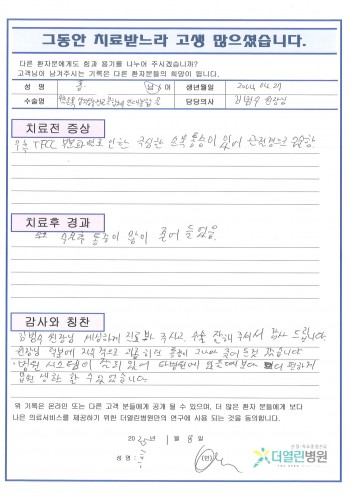 그동안 치료받느라 고생 많으셨습니다.
다른 환자분에게도 힘과 용기를 나누어 주시겠습니까?
고객님이 남겨주시는 기록은 다른 환자분들의 희망이 됩니다.
성 명 홍 남/여 생년월일
수술명 담당의사 김범수 원장님
치료전 증상
우측 TFCC 부분파열로 인한 극심한 손목통증이 있어 관절경으로 수술함.
치료후 경과
수술후 통증이 많이 줄어 들었음.
감사와 칭찬
김범수 원장님 세심하게 진료봐 주시고, 수술 잘해 주셔서 감사 드립니다.
원장님 덕분에 통증이 줄어든것 같습니다
병원 시스템이 잘되 있어 타병원에 보다 더 편하게
입원 생활 할 수 있었습니다.
위 기록은 온라인 또는 다른 고객 분들에게 공개 될 수 있으며, 더 많은 환자 분들에게 보다
나은 의료서비스를 제공하기 위한 더열린병원만의 연구에 사용 되는 것을 동의합니다.
2025년 1월 8일
성 명 : 홍 (인)
더열린병원